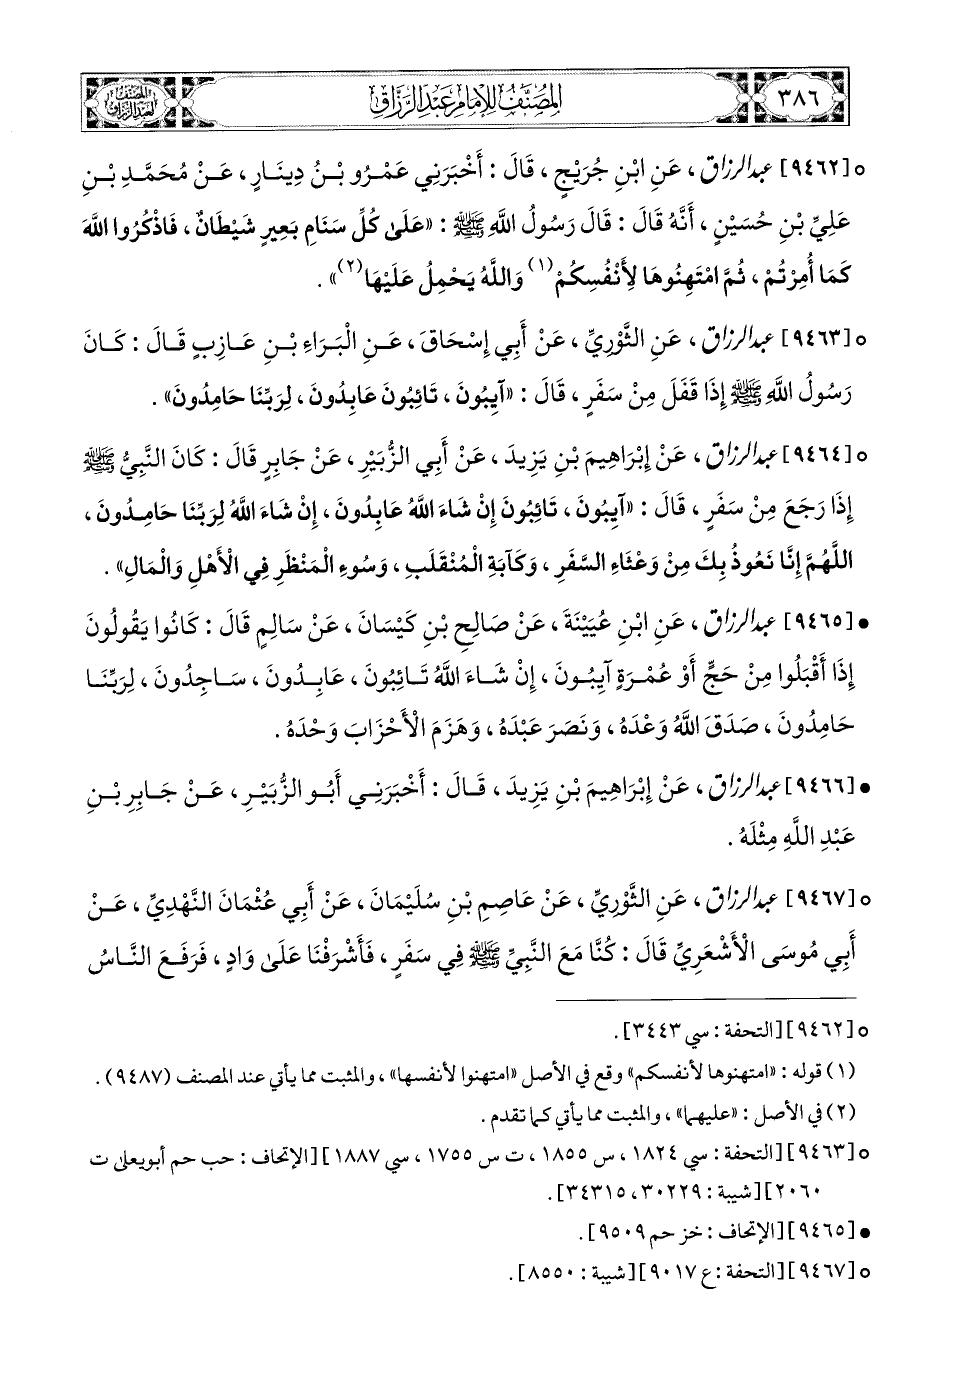 ٣٨٦
المصنف للإمام عبد الرزاق
المصنف لعبد الرزاق
○ [٩٤٦٢] عبد الرزاق، عَنِ ابْنِ جُرَيْجٍ، قَالَ: أَخْبَرَنِي عَمْرُو بْنُ دِينَارٍ، عَنْ مُحَمَّدِ بْنِ
عَلِيِّ بْنِ حُسَيْنٍ، أَنَّهُ قَالَ: قَالَ رَسُولُ اللَّهِ ﷺ: «عَلَى كُلِّ سَنَامِ بَعِيرٍ شَيْطَانٌ، فَاذْكُرُوا اللَّهَ
كَمَا أُمِرْتُمْ، ثُمَّ امْتَهِنُوهَا لِأَنْفُسِكُمْ(١) وَاللَّهُ يَحْمِلُ عَلَيْهَا(٢)».
○ [٩٤٦٣] عبد الرزاق، عَنِ الثَّوْرِيِّ، عَنْ أَبِي إِسْحَاقَ، عَنِ الْبَرَاءِ بْنِ عَازِبٍ قَالَ: كَانَ
رَسُولُ اللَّهِ ﷺ إِذَا قَفَلَ مِنْ سَفَرٍ، قَالَ: «آيِبُونَ، تَائِبُونَ عَابِدُونَ، لِرَبِّنَا حَامِدُونَ».
○ [٩٤٦٤] عبد الرزاق، عَنْ إِبْرَاهِيمَ بْنِ يَزِيدَ، عَنْ أَبِي الزُّبَيْرِ، عَنْ جَابِرٍ قَالَ: كَانَ النَّبِيُّ ﷺ
إِذَا رَجَعَ مِنْ سَفَرٍ، قَالَ: «آيِبُونَ، تَائِبُونَ إِنْ شَاءَ اللَّهُ عَابِدُونَ، إِنْ شَاءَ اللَّهُ لِرَبِّنَا حَامِدُونَ،
اللَّهُمَّ إِنَّا نَعُوذُ بِكَ مِنْ وَعْثَاءِ السَّفَرِ، وَكَآبَةِ الْمُنْقَلَبِ، وَسُوءِ الْمَنْظَرِ فِي الْأَهْلِ وَالْمَالِ».
● [٩٤٦٥] عبد الرزاق، عَنِ ابْنِ عُيَيْنَةَ، عَنْ صَالِحِ بْنِ كَيْسَانَ، عَنْ سَالِمٍ قَالَ: كَانُوا يَقُولُونَ
إِذَا أَقْبَلُوا مِنْ حَجٍّ أَوْ عُمْرَةٍ آيِبُونَ، إِنْ شَاءَ اللَّهُ تَائِبُونَ، عَابِدُونَ، سَاجِدُونَ، لِرَبِّنَا
حَامِدُونَ، صَدَقَ اللَّهُ وَعْدَهُ، وَنَصَرَ عَبْدَهُ، وَهَزَمَ الْأَحْزَابَ وَحْدَهُ.
● [٩٤٦٦] عبد الرزاق، عَنْ إِبْرَاهِيمَ بْنِ يَزِيدَ، قَالَ: أَخْبَرَنِي أَبُو الزُّبَيْرِ، عَنْ جَابِرِ بْنِ
عَبْدِ اللَّهِ مِثْلَهُ.
○ [٩٤٦٧] عبد الرزاق، عَنِ الثَّوْرِيِّ، عَنْ عَاصِمِ بْنِ سُلَيْمَانَ، عَنْ أَبِي عُثْمَانَ النَّهْدِيِّ، عَنْ
أَبِي مُوسَى الْأَشْعَرِيِّ قَالَ: كُنَّا مَعَ النَّبِيِّ ﷺ فِي سَفَرٍ، فَأَشْرَفْنَا عَلَى وَادٍ، فَرَفَعَ النَّاسُ
○ [٩٤٦٢][التحفة: سي ٣٤٤٣].
(١) قوله: «امتهنوها لأنفسكم» وقع في الأصل «امتهنوا لأنفسها»، والمثبت مما يأتي عند المصنف (٩٤٨٧).
(٢) في الأصل: «عليهما»، والمثبت مما يأتي كما تقدم.
○ [٩٤٦٣][التحفة: سي ١٨٢٤، س ١٨٥٥، ت س ١٧٥٥، سي ١٨٨٧][الإتحاف: حب حم أبويعلى ت
٢٠٦٠][شيبة: ٣٠٢٢٩، ٣٤٣١٥].
● [٩٤٦٥][الإتحاف: خز حم ٩٥٠٩].
○ [٩٤٦٧][التحفة: ع ٩٠١٧][شيبة: ٨٥٥٠].